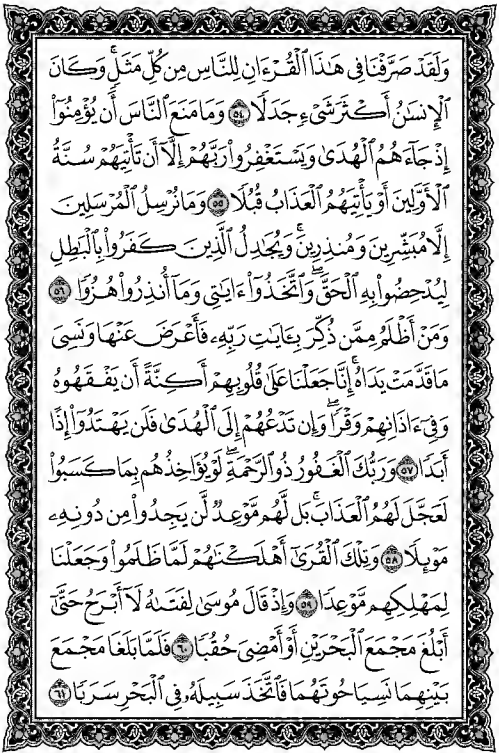 وَلَقَدْ صَرَّفْنَا فِى هَٰذَا ٱلْقُرْءَانِ لِلنَّاسِ مِن كُلِّ مَثَلٍ ۚ وَكَانَ
ٱلْإِنسَٰنُ أَكْثَرَ شَىْءٍ جَدَلًا ٥٤ وَمَا مَنَعَ ٱلنَّاسَ أَن يُؤْمِنُوٓا۟
إِذْ جَآءَهُمُ ٱلْهُدَىٰ وَيَسْتَغْفِرُوا۟ رَبَّهُمْ إِلَّآ أَن تَأْتِيَهُمْ سُنَّةُ
ٱلْأَوَّلِينَ أَوْ يَأْتِيَهُمُ ٱلْعَذَابُ قُبُلًا ٥٥ وَمَا نُرْسِلُ ٱلْمُرْسَلِينَ
إِلَّا مُبَشِّرِينَ وَمُنذِرِينَ ۚ وَيُجَٰدِلُ ٱلَّذِينَ كَفَرُوا۟ بِٱلْبَٰطِلِ
لِيُدْحِضُوا۟ بِهِ ٱلْحَقَّ ۖ وَٱتَّخَذُوٓا۟ ءَايَٰتِى وَمَآ أُنذِرُوا۟ هُزُوًا ٥٦
وَمَنْ أَظْلَمُ مِمَّن ذُكِّرَ بِـَٔايَٰتِ رَبِّهِۦ فَأَعْرَضَ عَنْهَا وَنَسِىَ
مَا قَدَّمَتْ يَدَاهُ ۚ إِنَّا جَعَلْنَا عَلَىٰ قُلُوبِهِمْ أَكِنَّةً أَن يَفْقَهُوهُ
وَفِىٓ ءَاذَانِهِمْ وَقْرًا ۖ وَإِن تَدْعُهُمْ إِلَى ٱلْهُدَىٰ فَلَن يَهْتَدُوٓا۟ إِذًا
أَبَدًا ٥٧ وَرَبُّكَ ٱلْغَفُورُ ذُو ٱلرَّحْمَةِ ۖ لَوْ يُؤَاخِذُهُم بِمَا كَسَبُوا۟
لَعَجَّلَ لَهُمُ ٱلْعَذَابَ ۚ بَل لَّهُم مَّوْعِدٌ لَّن يَجِدُوا۟ مِن دُونِهِۦ
مَوْئِلًا ٥٨ وَتِلْكَ ٱلْقُرَىٰٓ أَهْلَكْنَٰهُمْ لَمَّا ظَلَمُوا۟ وَجَعَلْنَا
لِمَهْلِكِهِم مَّوْعِدًا ٥٩ وَإِذْ قَالَ مُوسَىٰ لِفَتَىٰهُ لَآ أَبْرَحُ حَتَّىٰٓ
أَبْلُغَ مَجْمَعَ ٱلْبَحْرَيْنِ أَوْ أَمْضِىَ حُقُبًا ٦٠ فَلَمَّا بَلَغَا مَجْمَعَ
بَيْنِهِمَا نَسِيَا حُوتَهُمَا فَٱتَّخَذَ سَبِيلَهُۥ فِى ٱلْبَحْرِ سَرَبًا ٦١